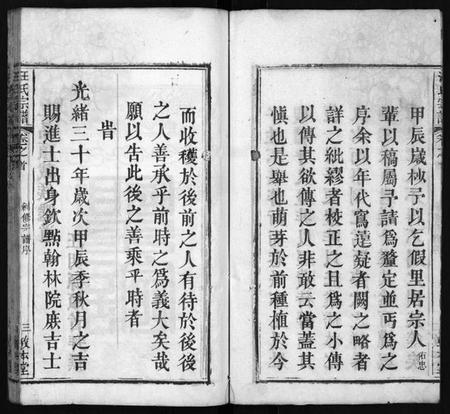 甲辰歲杪予以乞假里居宗人佑忠
輩以稿屬予請爲釐定並丐爲之
序余以年代寫遠疑者闕之略者
詳之紕繆者校正之且爲之小傳
以傳其欲傳之人非敢云當蓋其
慎也是舉也萌芽於前種植於今
而收穫於後前之人有待於後後
之人善承乎前時之爲義大矣哉
願以告此後之善乘乎時者
旹
光緒三十年歲次甲辰季秋月之吉
賜進士出身欽點翰林院庶吉士
汪氏宗譜
卷之首